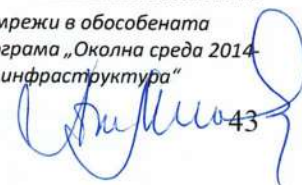 мрежи в обособената
ограма „Околна среда 2014-
инфраструктура“
43